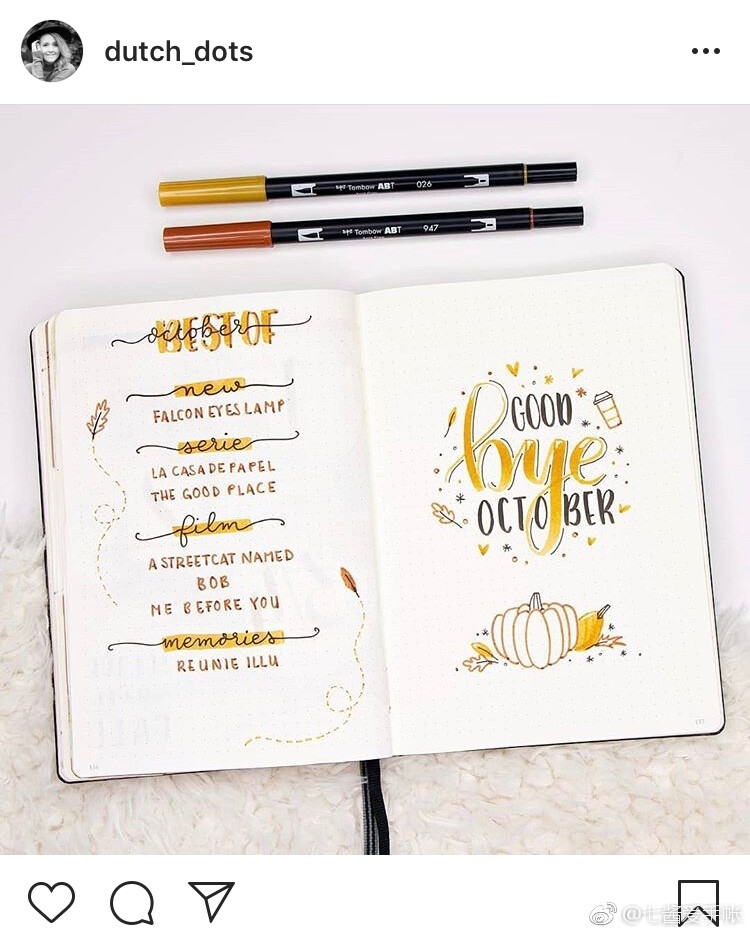 dutch_dots
Tombow ABT 026
Tombow ABT 947
october
BEST OF
new
FALCON EYES LAMP
serie
LA CASA DE PAPEL
THE GOOD PLACE
film
A STREETCAT NAMED
BOB
ME BEFORE YOU
memories
REUNIE ILLU
GOOD
bye
OCTOBER
@七酱爱手帐